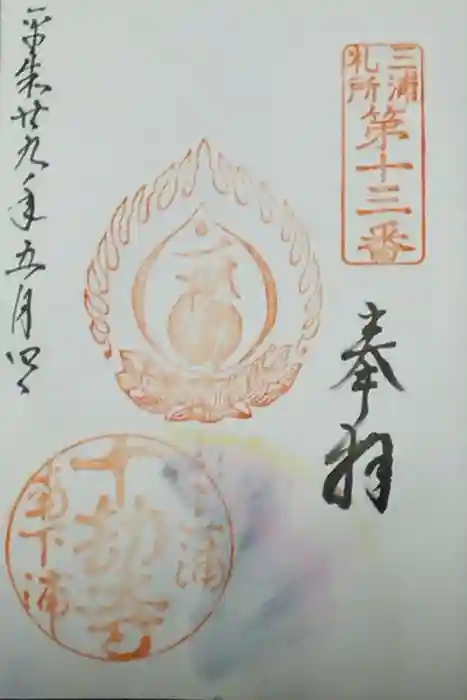 三浦
札所
第十三番
奉拝
三浦
十劫寺
南下浦
平成廿九年五月四日